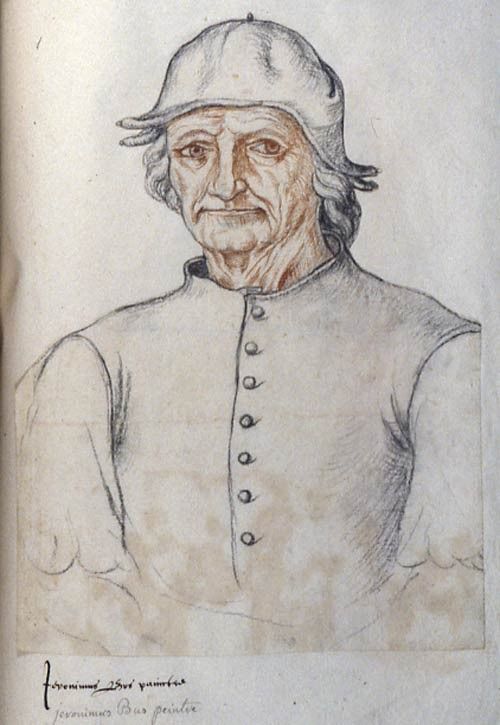 Jeronimus Bos paintre
jeronimus Bus peintre